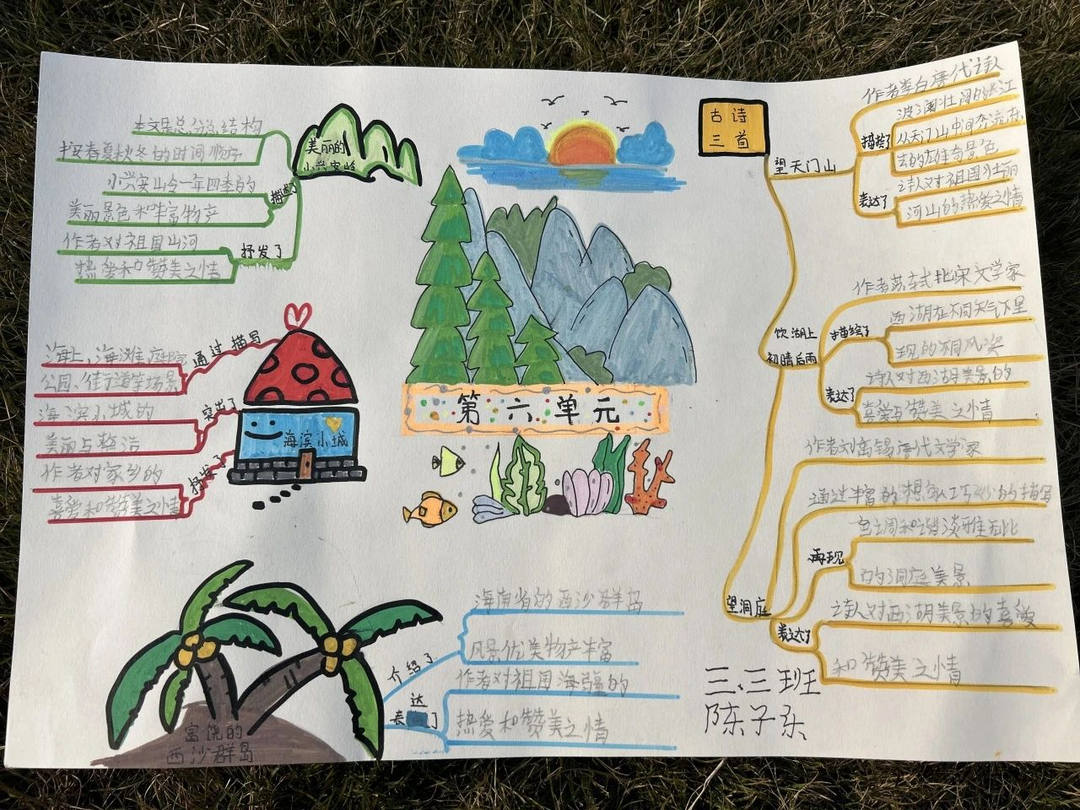 第六单元
美丽的
小兴安岭
本文是总分总结构
按春夏秋冬的时间顺序
描述了
小兴安山令一年四季的
美丽景色和丰富物产
抒发了
作者对祖国山河
热爱和赞美之情
海滨小城
通过描写
海上、海滩庭院
公园、街道等场景
突出了
海滨小城的
美丽与整洁
抒发了
作者对家乡的
喜爱和赞美之情
富饶的
西沙群岛
介绍了
海南省的西沙群岛
风景优美物产丰富
表达了
作者对祖国海疆的
热爱和赞美之情
古诗
三首
望天门山
作者李白唐代诗人
描绘了
波澜壮阔的长江
从天门山中间奔流而
去的雄伟奇景色
表达了
诗人对祖国壮丽
河山的热爱之情
饮湖上
初晴后雨
作者苏轼北宋文学家
描绘了
西湖在不同天气下呈
现的不同风姿
表达了
诗人对西湖美景的
喜爱与赞美之情
望洞庭
作者刘禹锡唐代文学家
通过丰富的想象工巧妙的描写
再现
色调和谐淡雅无比
的洞庭美景
表达了
诗人对西湖美景的喜爱
和赞美之情
三、三班
陈子乐